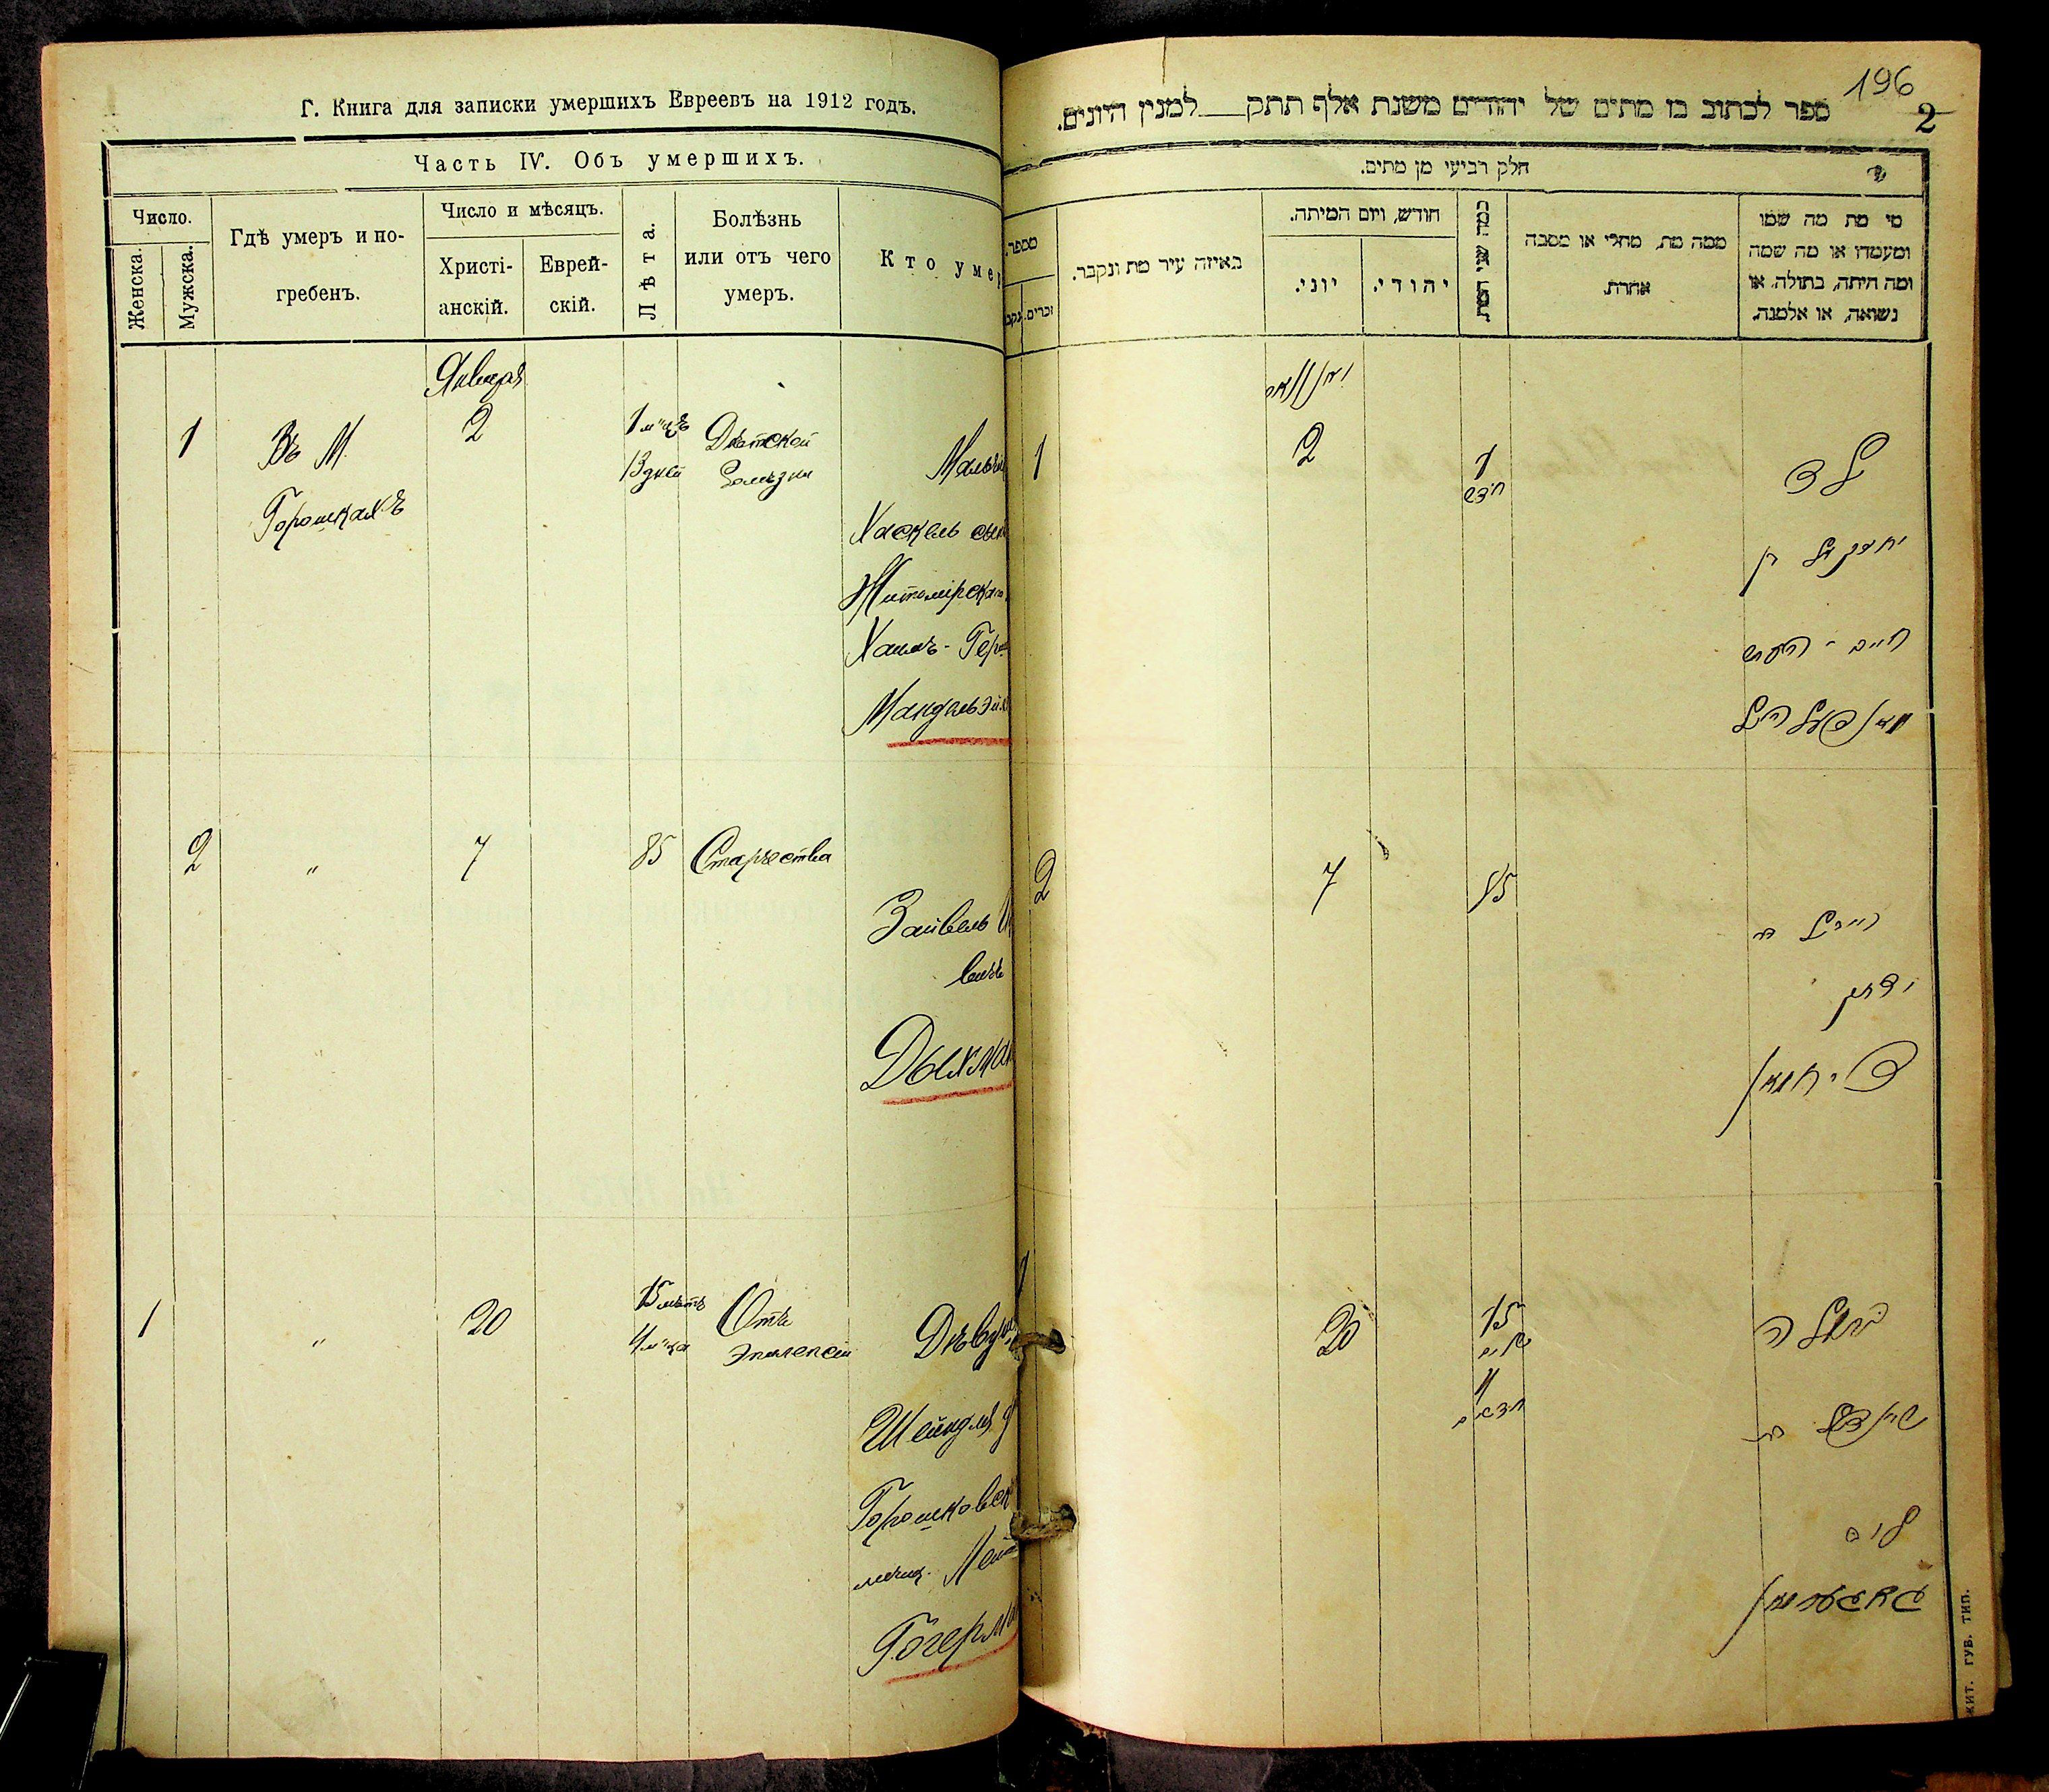 Г. Книга для записки умершихъ Евреевъ на 1912 годъ.
Часть IV. Объ умершихъ.
Число.
Женска.
Мужска.
Гдѣ умеръ и по-
гребенъ.
Число и мѣсяцъ.
Христі-
анскій.
Еврей-
скій.
Лѣта.
Болѣзнь
или отъ чего
умеръ.
Кто умер
Января
1
Въ М.
Горошкахъ
2
1 м-цъ
13 дней
Дѣтской
болѣзни
Мальчи
Хаскель сын
Житомірскаго
Хаимъ-Герш
Мандельэй
2
"
7
85
Старчества
Зайвель
вичъ
Дыхман
1
"
20
15 лѣтъ
4 м-ца
Отъ
эпилепсіи
Дѣвуш
Шейндля д
Горошковск
мѣщ. Лей
Гогерма
196
2
ספר לכתוב בו מתים של יהודים משנת אלף תתק למנין היונים.
חלק רביעי מן מתים.
מספר.
זכרים.
נקב
באיזה עיר מת ונקבר.
חודש, ויום המיתה.
יוני.
יהודי.
כמה שני המת
ממה מת, מחלי או מסבה
אחרת.
מי מת מה שמו
ומעמדו או מה שמה
ומה היתה, בתולה, או
נשואה, או אלמנה.
יאנואר
1
2
1
חדש
ילד
יחזקאל בן
חיים - הערש
מאנדעלהייל
2
7
85
זיידיל בר
יצחק
דיחמאן
1
20
15
שנים
4
חדשים
בתולה
שיינדל בת
ליב
КИТ. ГУБ. ТИП.